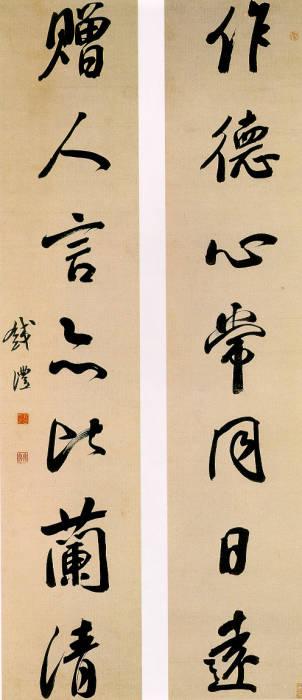 作德心常同日遠
贈人言亦比蘭清
錢灃